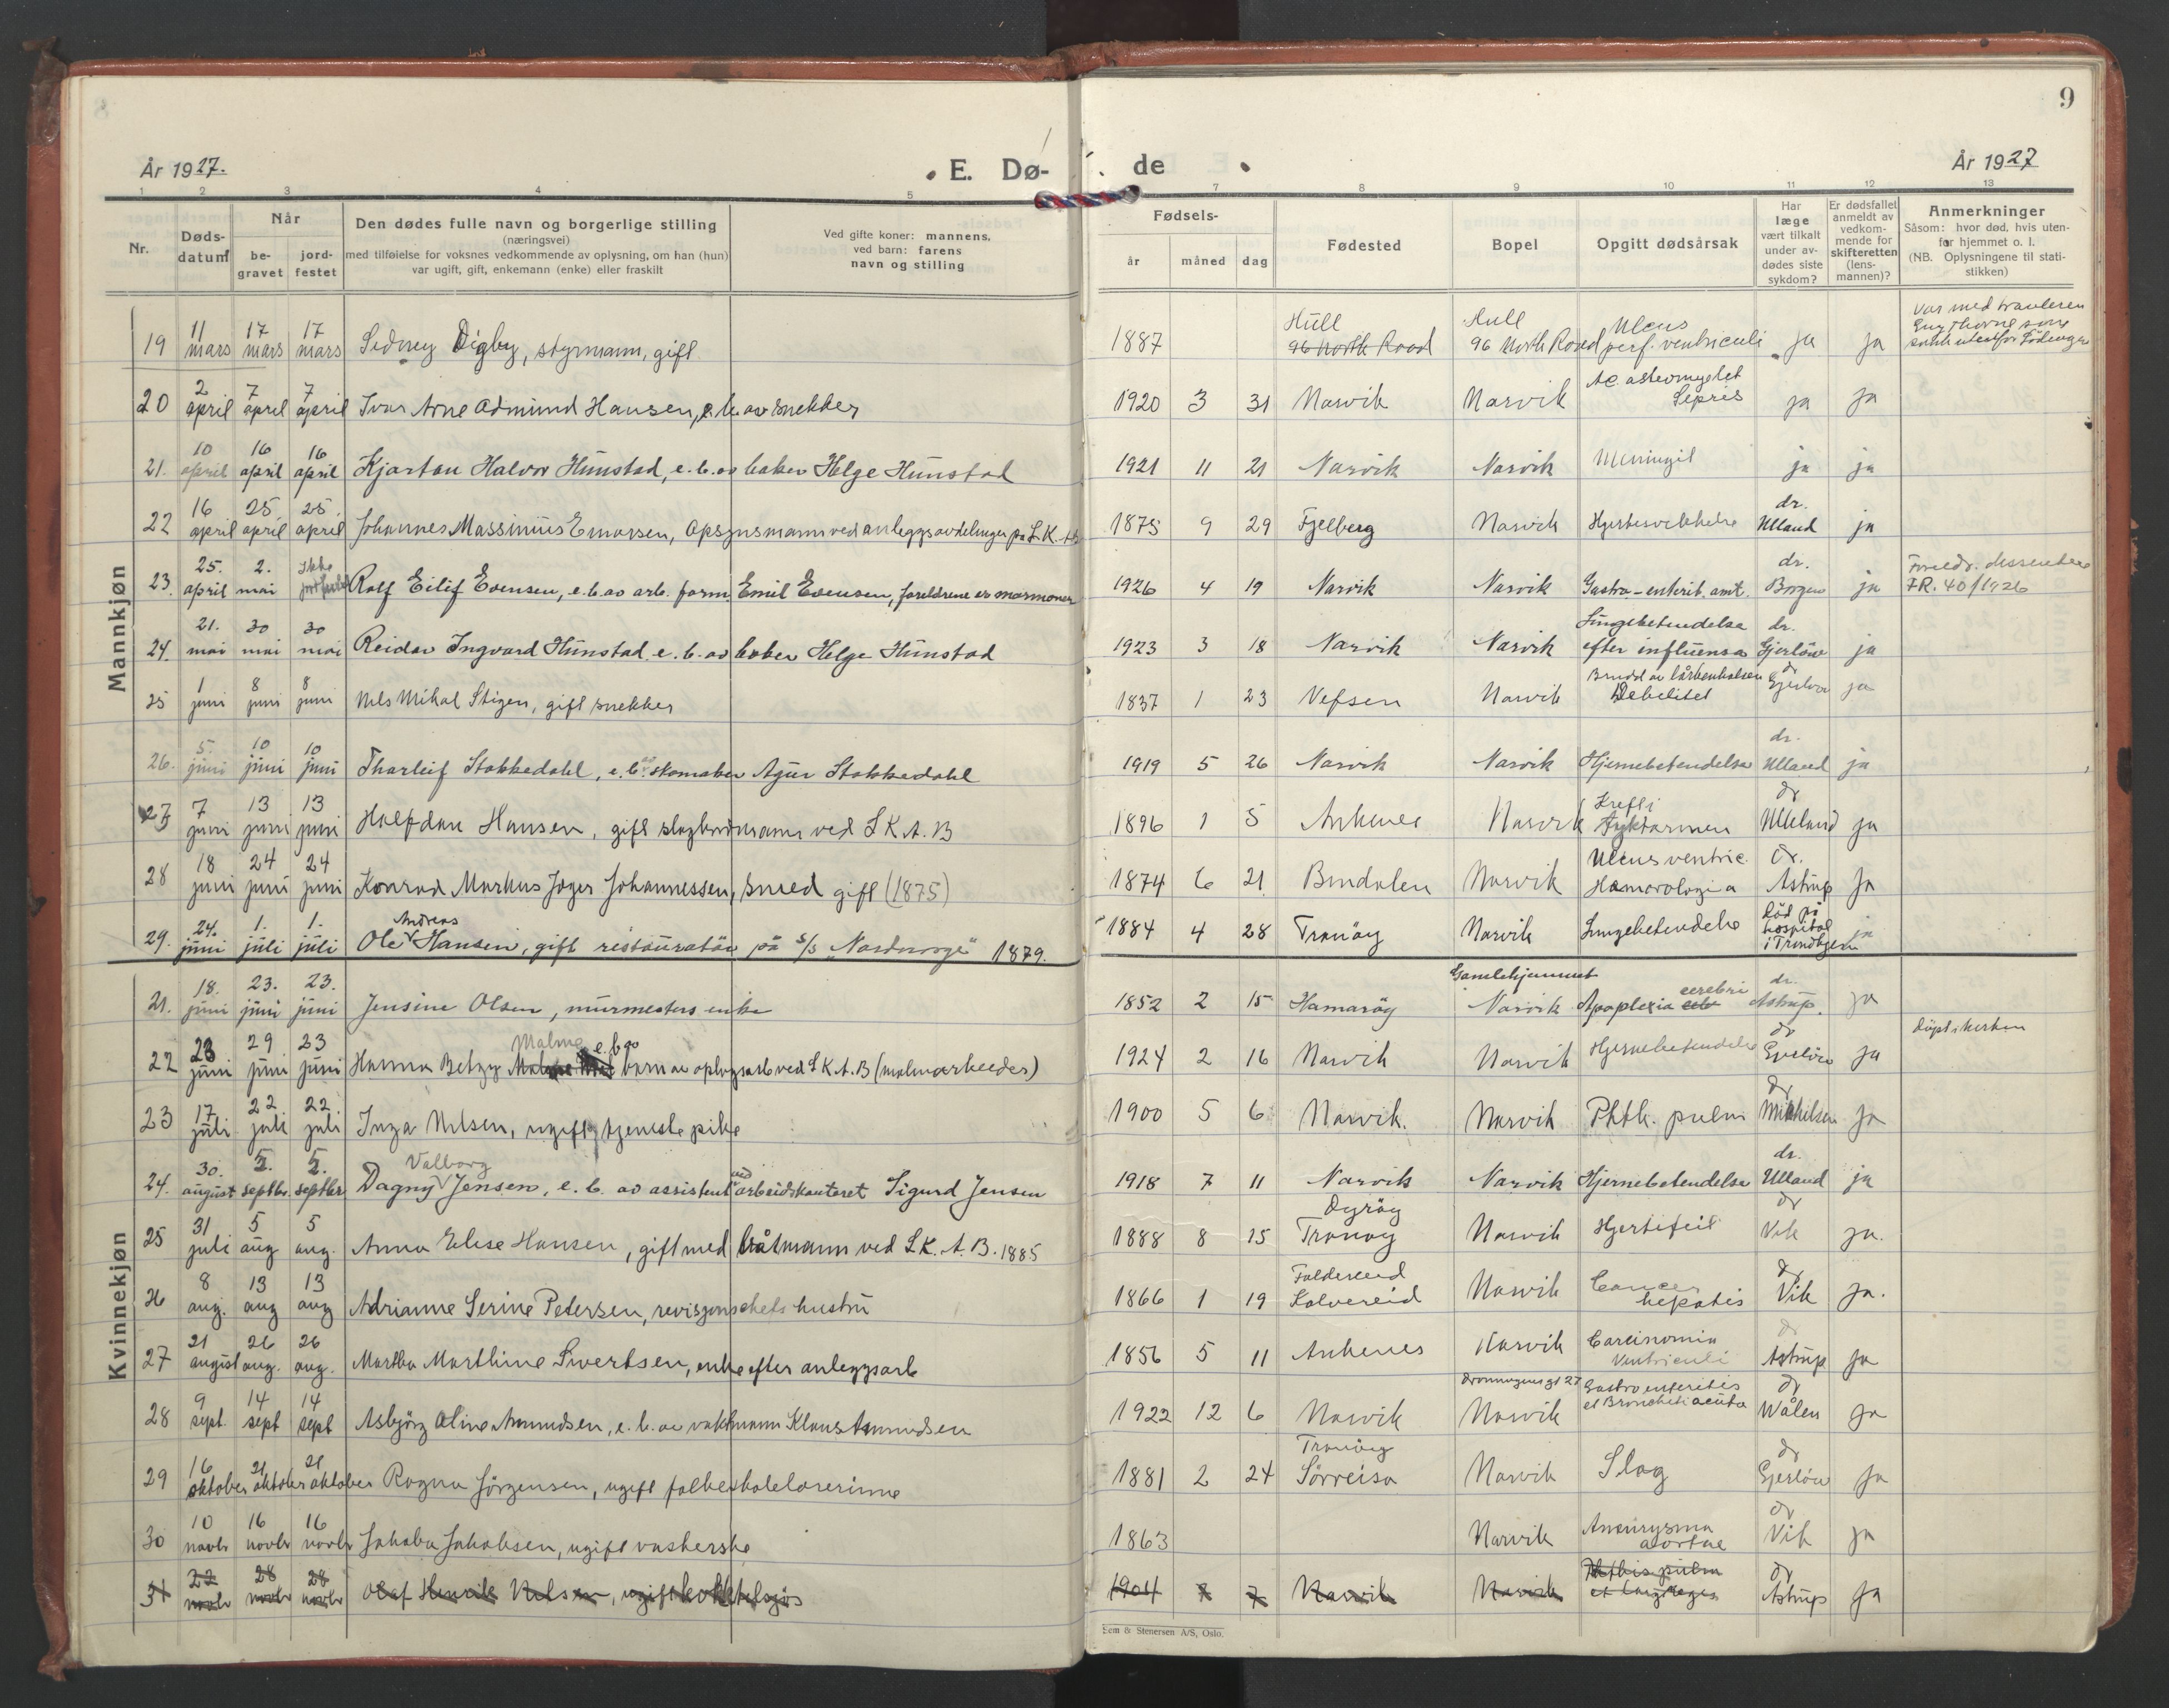 År 1927.
E. Dø-
de
År 1927
9
1 2 3 4 5 7 8 9 10 11 12 13
Nr.
Døds-
datum
Når
be-
gravet
jord-
festet
Den dødes fulle navn og borgerlige stilling
(næringsvei)
med tilføielse for voksnes vedkommende av oplysning, om han (hun)
var ugift, gift, enkemann (enke) eller fraskilt
Ved gifte koner: mannens,
ved barn: farens
navn og stilling
Fødsels-
år måned dag
Fødested
Bopel
Opgitt dødsårsak
Har
læge
vært tilkalt
under av-
dødes siste
sykdom?
Er dødsfallet
anmeldt av
vedkom-
mende for
skifteretten
(lens-
mannen)?
Anmerkninger
Såsom: hvor død, hvis uten-
for hjemmet o. l.
(NB. Oplysningene til stati-
stikken)
Mannkjøn
19 11 mars 17 mars 17 mars Sidney Digby, styrmann, gift 1887 Hull 96 North Road Hull 96 North Road Ulcus perf. ventriculi ja ja Var med trauleren
20 2 april 7 april 7 april Ivar Arne Admund Hansen, e. b. av snekker 1920 3 31 Narvik Narvik Ac. osteomyelit Sepsis ja ja
21. 10 april 16 april 16 april Kjartan Halvor Hunstad, e. b. av baker Helge Hunstad 1921 11 21 Narvik Narvik Meningit ja ja
22 16 april 25. april 25. april Johannes Massinius Enoksen, opsynsmann ved anleggsavdelingen på L.K.A.B 1875 9 29 Fjelberg Narvik Hjertesvekkelse dr. Ulland ja
23. 25. april 2. mai Ikke jordfestet Rolf Eilif Evensen, e. b. av arb. form. Emil Evensen, foreldrene er mormoner 1926 4 19 Narvik Narvik Gastro-enterit. amt. dr. Borgen ja Foreldr. dissentere F.R. 40/1926
24. 21. mai 30 mai 30 mai Reidar Ingvard Hunstad e. b. av baker Helge Hunstad 1923 3 18 Narvik Narvik Lungebetendelse efter influensa dr. Gjerløw ja
25 1 juni 8 juni 8 juni Nils Mikal Stigen, gift snekker 1837 1 23 Vefsen Narvik Brudd av lårbenhalsen Debilitet dr Gjerløw ja
26. 5. juni 10 juni 10 juni Tharleif Stokkedahl, e. b. av skomaker Agur Stokkedahl 1919 5 26 Narvik Narvik Hjernebetendelse dr. Ulland ja
27 7 juni 13 juni 13 juni Halfdan Hansen, gift ved L.K.A.B 1896 1 5 Ankenes Narvik Kreft i tyktarmen dr Ulland ja
28 18 juni 24 juni 24 juni Konrad Markus Jøger Johannessen, smed gift (1875) 1874 6 21 Bindalen Narvik Ulcus ventric. dr. Astrup ja
29. 24. juni 1. juli 1. juli Ole Andreas Hansen, gift restauratør på s/s "Nordnorge" 1879. 1884 4 28 Tranøy Narvik Lungebetendelse død på hospital i Trondhjem ja
Kvinnekjøn
21. 18. juni 23. juni 23. juni Jensine Olsen, murmesters enke 1852 2 15 Hamarøy Gamlehjemmet Narvik Apoplexia cerebri dr. Astrup. ja
22 23 juni 29 juni 23 juni Hanna Betzy Malme e. b. av barn av oplagsarb ved L.K.A.B (malmarbeider) 1924 2 16 Narvik Narvik Hjernebetendelse dr Gjerløw ja døpt i kirken
23 17. juli 22. juli 22. juli Inga Nilsen, ugift, tjenestepike 1900 5 6 Narvik. Narvik Phth. pulm dr Mikkelsen ja
24. 30. august 5. septbr. 5. septbr Dagny Valborg Jensen, e. b. av assistent ved arbeidskontoret Sigurd Jensen 1918 7 11 Narvik Narvik Hjernebetendelse dr. Ulland ja
25 31 juli 5 aug 5 aug. Anna Elise Hansen, gift med båtmann ved L.K.A.B. 1885 1888 8 15 Dyrøy Tranøy Narvik Hjertefeil dr Vik ja.
26 8 aug. 13 aug 13 aug Adrianne Serine Petersen, revisjonschefs hustru 1866 1 19 Foldereid Kolvereid Narvik Cancer hepatis dr Vik ja.
27 21 august 26 aug. 26 aug. Martha Marthine Sivertsen, enke efter anleggsarb 1856 5 11 Ankenes Narvik Carcinomia Ventriculi dr Astrup ja
28 9 sept. 14 sept 14 sept Asbjørg Oline Amundsen, e. b. av vaktmann Klaus Amundsen 1922 12 6 Narvik Dronningensgt 27 Narvik Gastroenteritis et Bronchiti acuta dr Wålen ja
29 16 oktober 21 oktober 21 oktober Ragna Jørgensen, ugift folkeskolelærerinne 1881 2 24 Tranøy Sørreisa Narvik Slag dr Gjerløw ja
30 10 novbr 16 novbr 16 novbr Jakoba Jakobsen, ugift vaskerske 1863 Narvik Aneurysma aortae dr Vik ja
31 22 novbr 28 novbr 28 novbr Olaf Henrik Nilsen, ugift kokk tilsjøs 1904 7 Narvik Narvik Phthisis pulm et laryngis dr Astrup ja
Sem & Stenersen A/S, Oslo.